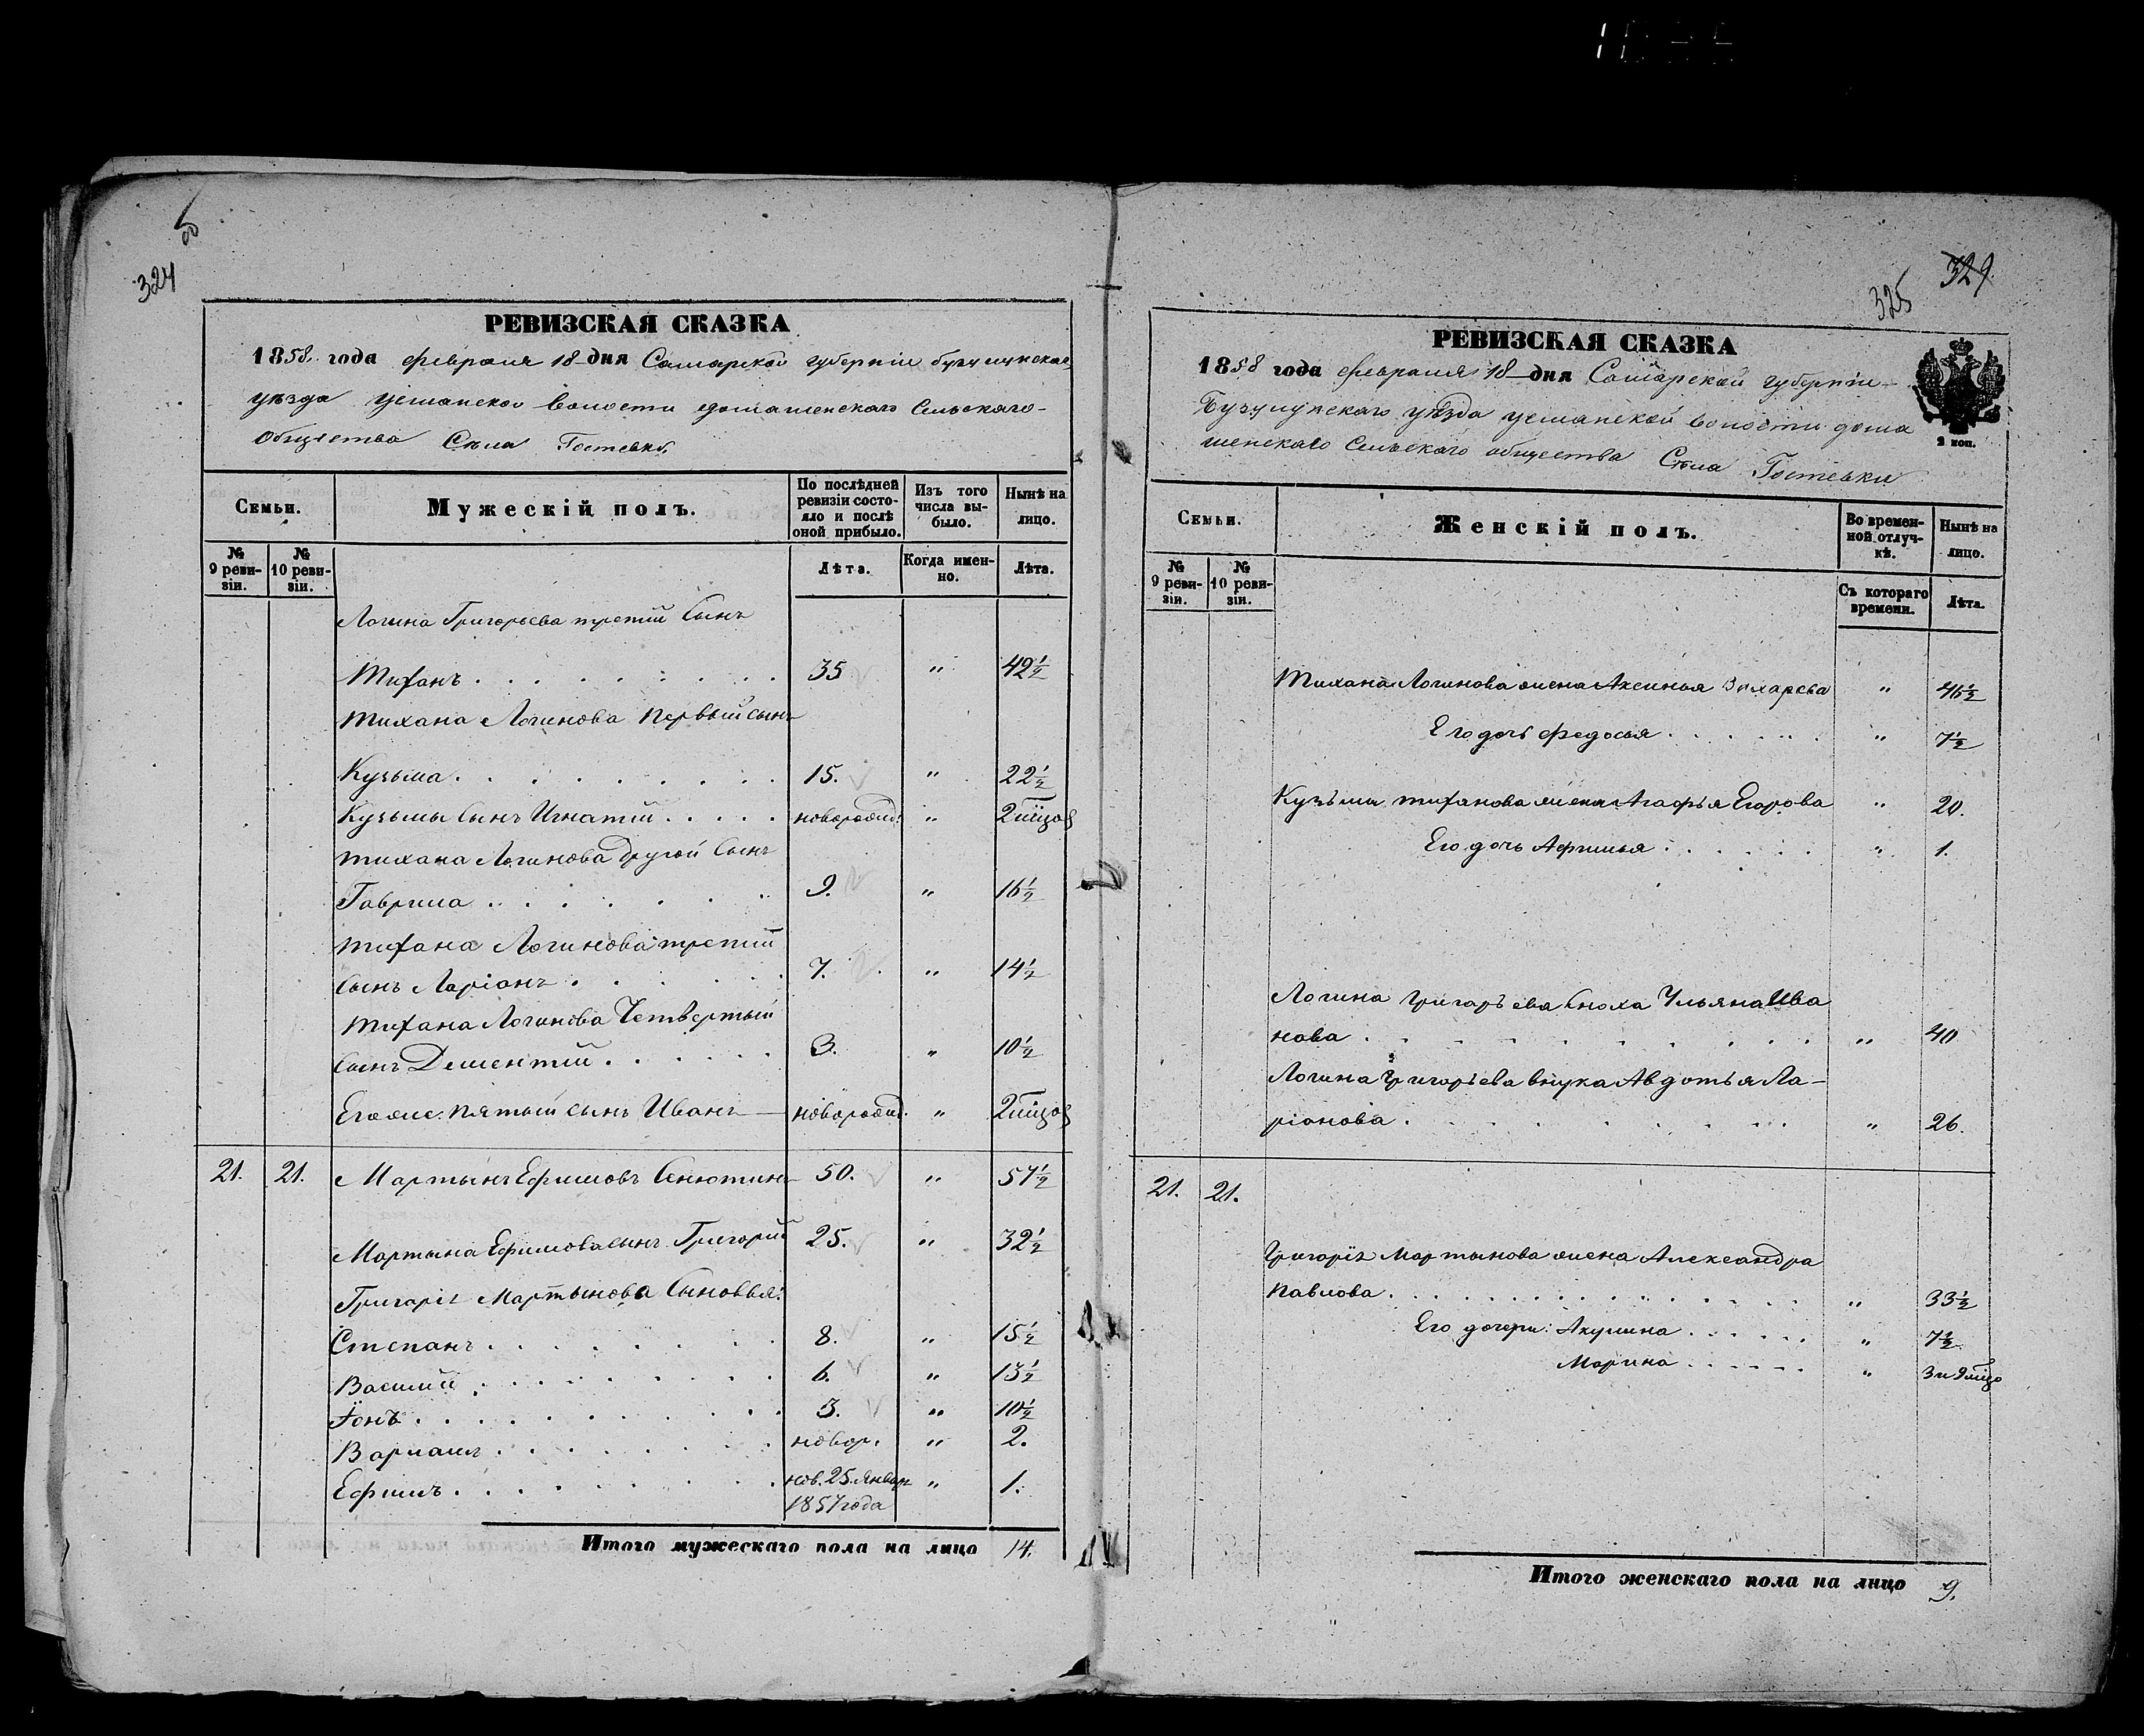 324
325
329
РЕВИЗСКАЯ СКАЗКА
1858 года февраля 18 дня Самарской губерніи бузулунскаго
уѣзда усманской волости домашенскаго Сельскаго
Общества Села Гостевки
Семьи.
Мужескій полъ.
По послѣдней ревизіи состояло и послѣ оной прибыло.
Изъ того числа выбыло.
Нынѣ на лицо.
№ 9 ревизіи.
№ 10 ревизіи.
Лѣта.
Когда именно.
Лѣта.
Логина Григорьева третій Сынъ
Тиханъ 35 " 42½
Тихана Логинова Первый сынъ
Кузьма 15. " 22½
Кузьмы Сынъ Игнатій новорожд: " 2 мѣцов
Тихана Логинова другой Сынъ
Гаврила 9. " 16½
Тихана Логинова третий
Сынъ Ларіонъ 7. " 14½
Тихана Логинова Четвертый
Сынъ Дементій 3. " 10½
Егоже пятый сынъ Иванъ новорожд. " 2 мѣцов
21. 21. Мартынъ Ефимовъ Сенютинъ 50. " 57½
Мартына Ефимова сынъ Григорий 25. " 32½
Григоріа Мартынова Сыновья:
Степанъ 8. " 15½
Василій 6. " 13½
Іонъ 3. " 10½
Варламъ новор. " 2.
Ефимъ нов. 25. Январ " 1.
1857 года
Итого мужескаго пола на лицо 14.
РЕВИЗСКАЯ СКАЗКА
1858 года февраля 18 дня Самарской губерніи
Бузулунскаго уѣзда усманской волости дома
шенскаго Сельскаго общества Села Гостевки
2 коп.
Семьи.
Женскій полъ.
Во временной отлучкѣ.
Нынѣ на лицо.
№ 9 ревизіи.
№ 10 ревизіи.
Съ котораго времени.
Лѣта.
Тихана Логинова жена Аксинья Захарева " 46½
Его дочь Федосья " 7½
Кузьмы Тиханова жена Агафья Егорова " 20.
Его дочь Афимья " 1.
Логина Григорьева Сноха Ульяна Ива
нова " 40
Логина Григорьева внука Авдотья Ла-
ріонова " 26.
21. 21.
Григорія Мартынова жена Александра
Павлова " 33½
Его дочери: Акулина " 7½
Марина " 3 и 9 мѣцо
Итого женскаго пола на лицо 9.